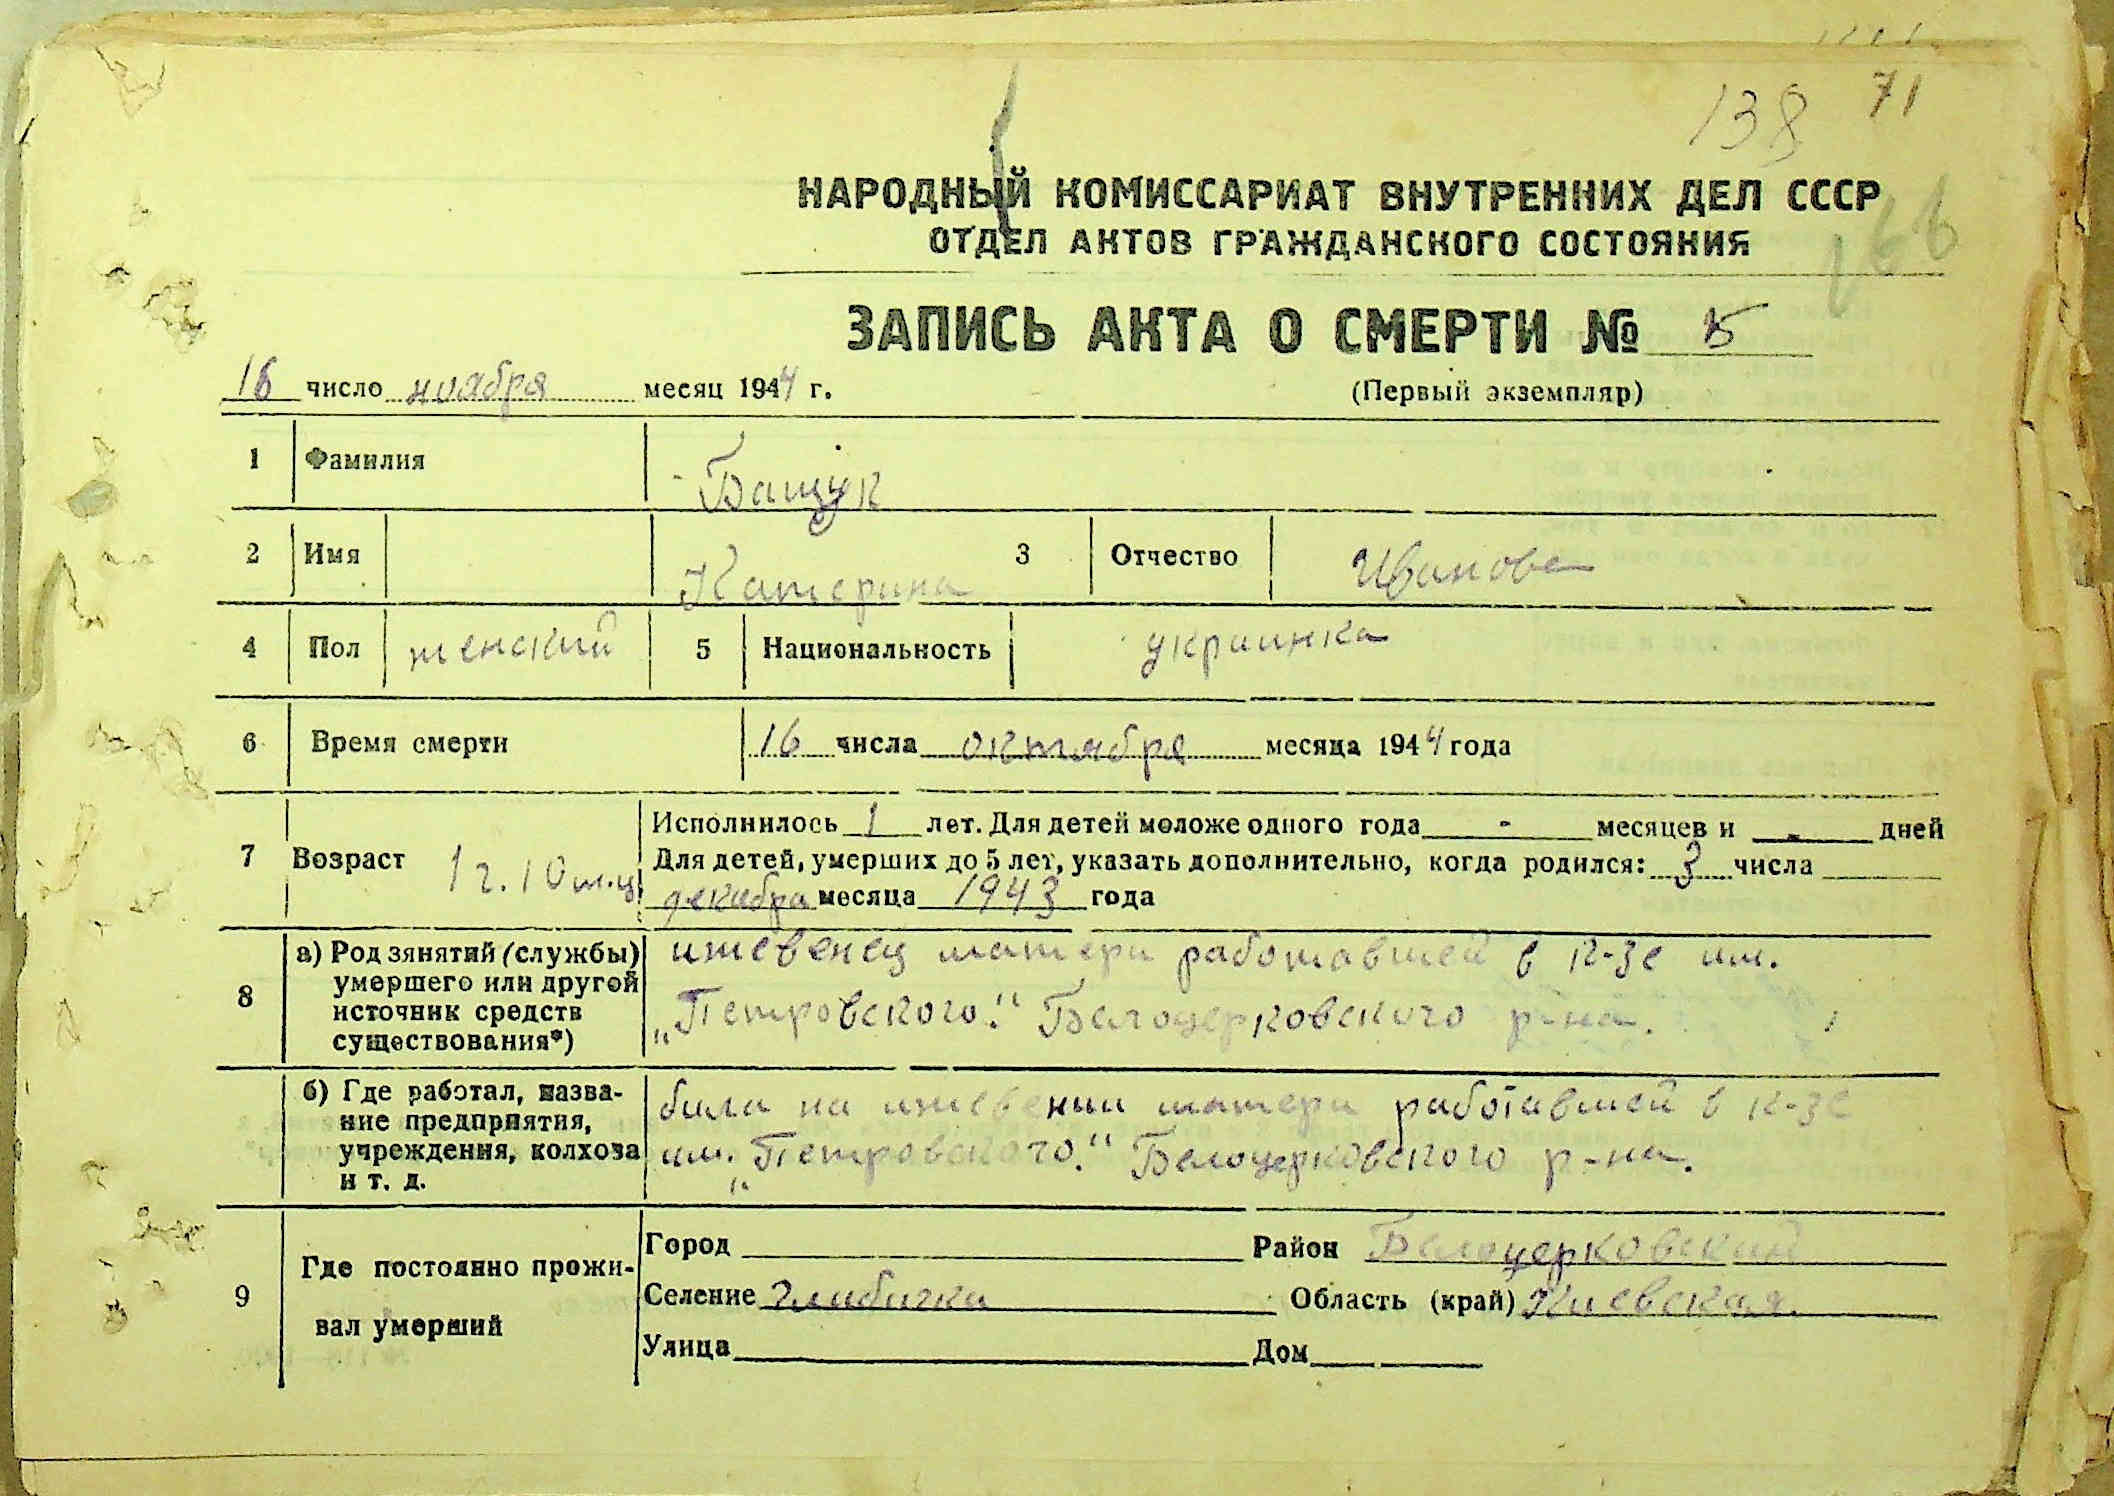 138 71
НАРОДНЫЙ КОМИССАРИАТ ВНУТРЕННИХ ДЕЛ СССР
ОТДЕЛ АКТОВ ГРАЖДАНСКОГО СОСТОЯНИЯ
166
ЗАПИСЬ АКТА О СМЕРТИ № 5
16 число ноября месяц 1944 г. (Первый экземпляр)
1 Фамилия Бащук
2 Имя Катерина 3 Отчество Иванова
4 Пол женский 5 Национальность украинка
6 Время смерти 16 числа октября месяца 1944 года
Исполнилось 1 лет. Для детей моложе одного года - месяцев и - дней
7 Возраст 1 г. 10 м-ц. Для детей, умерших до 5 лет, указать дополнительно, когда родился: 3 числа
декабра месяца 1943 года
8 а) Род зянятий (службы) умершего или другой источник средств существования*)
ижевенец матери работавшей в к-зе им.
„Петровского." Белоцерковского р-на.
б) Где работал, назва-
ние предприятия,
учреждения, колхоза
и т. д.
била на ижевении матери работавшей в к-зе
им. „Петровского." Белоцерковского р-на.
9 Где постоянно прожи-
вал умерший
Город Район Белоцерковский
Селение Глибичка Область (край) Киевская.
Улица Дом